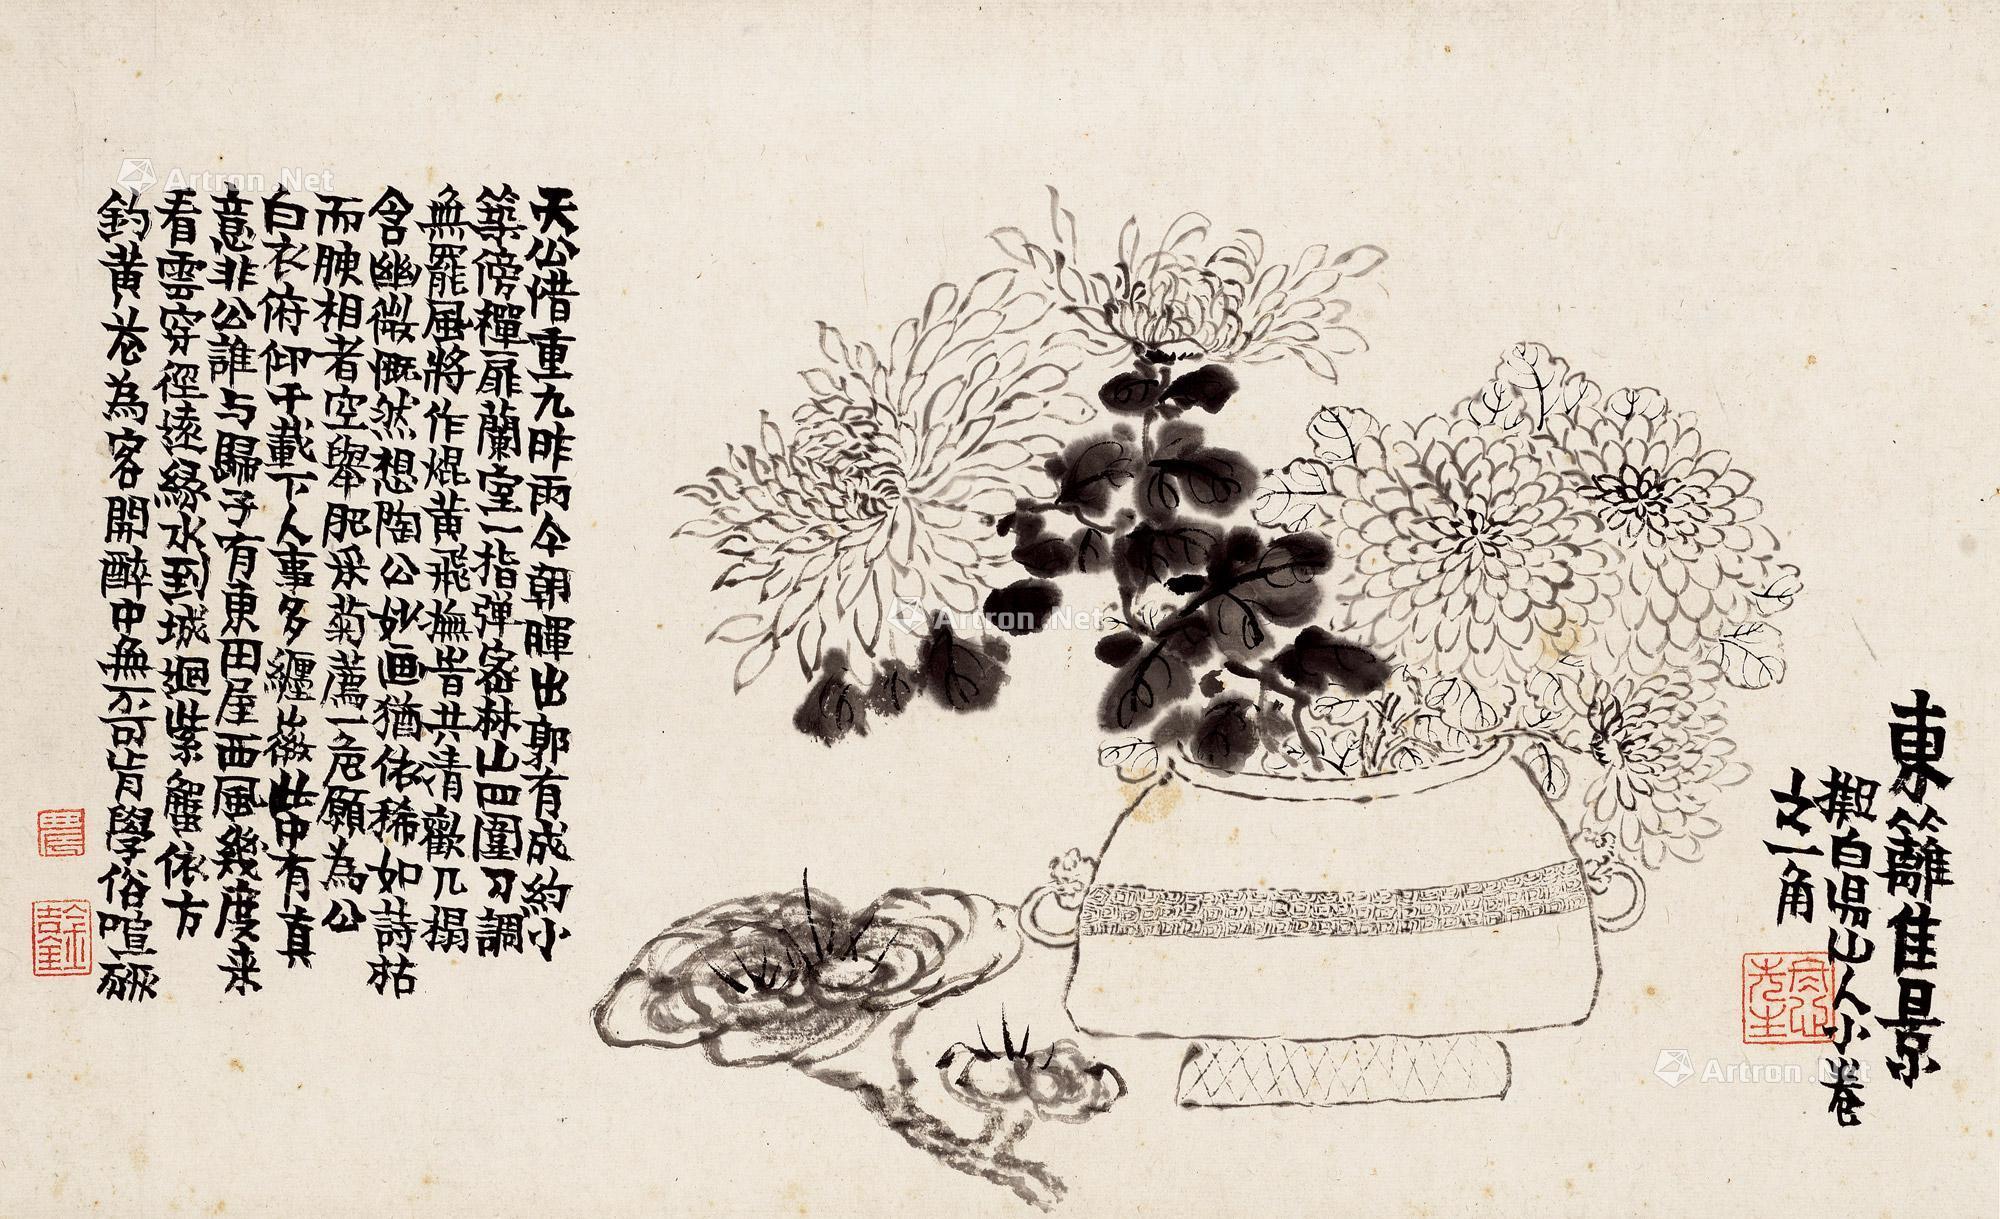 東籬佳景
擬白陽山人小卷
之一角
天公借重九昨雨今朝暉出郭有成約小
築傍禪扉蘭室一指彈密林山四圍刀調
無罷風將作焜黃飛撫昔共清歡几榻
含幽微慨然想陶公妙画猶依稀如詩枯
而腴相者空舉肥采菊薦一卮願為公
白衣俯仰千載下人事多纏此中有真
意非公誰与歸子有東田屋西風幾度来
看雲穿徑遠緣水到城迴紫蟹依方
釣黃花為客開醉中無不可肯學俗喧豗
Artron.Net
Artron.Net
Artron.Net